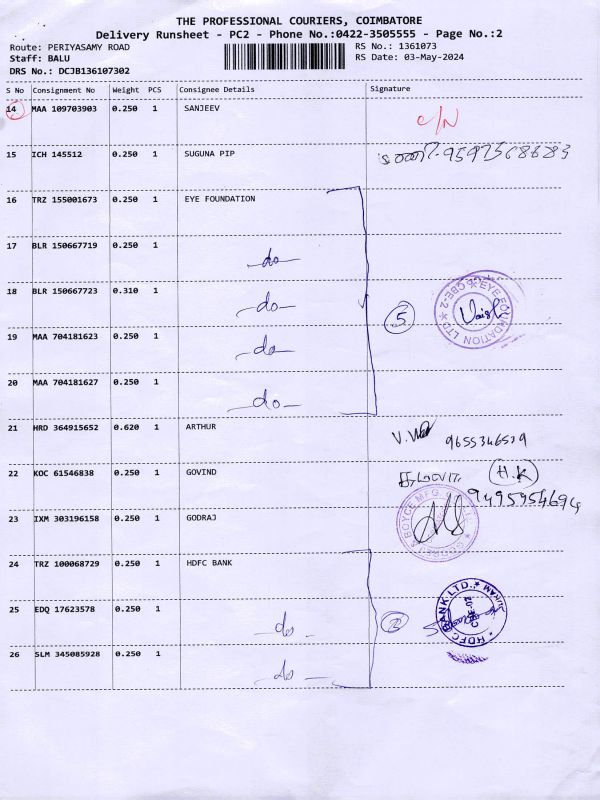 THE PROFESSIONAL COURIERS, COIMBATORE
Delivery Runsheet - PC2 - Phone No.:0422-3505555 - Page No.:2
Route: PERIYASAMY ROAD
RS No.: 1361073
Staff: BALU
RS Date: 03-May-2024
DRS No.: DCJB136107302
S No Consignment No Weight PCS Consignee Details Signature
14 MAA 109703903 0.250 1 SANJEEV C/N
15 ICH 145512 0.250 1 SUGUNA PIP
16 TRZ 155001673 0.250 1 EYE FOUNDATION
17 BLR 150667719 0.250 1 -do-
18 BLR 150667723 0.310 1 -do- 5 EYE FOUNDATION LTD CBE-2
19 MAA 704181623 0.250 1 -do-
20 MAA 704181627 0.250 1 -do-
21 HRD 364915652 0.620 1 ARTHUR
22 KOC 61546838 0.250 1 GOVIND H.K
9495954694
23 IXM 303196158 0.250 1 GODRAJ BOYCE MFG.
24 TRZ 100068729 0.250 1 HDFC BANK
25 EDQ 17623578 0.250 1 -do- 2 HDFC BANK LTD.
26 SLM 345085928 0.250 1 -do-